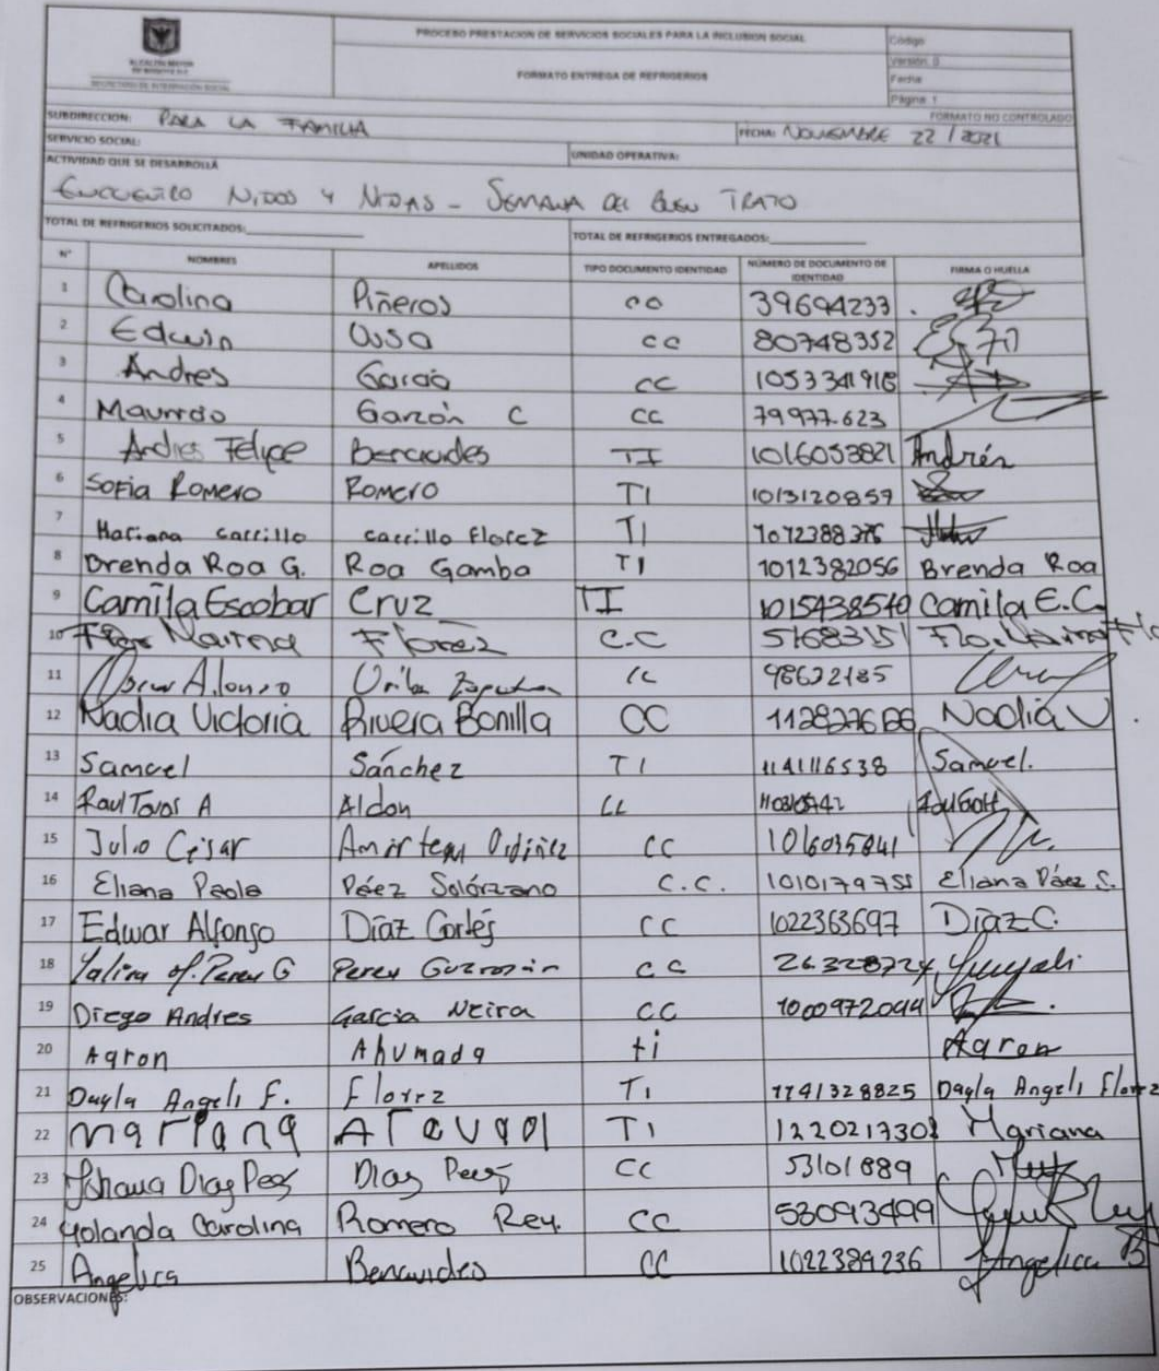 PROCESO PRESTACION DE SERVICIOS SOCIALES PARA LA INCLUSION SOCIAL
Código:
ALCALDÍA MAYOR
DE BOGOTÁ D.C.
SECRETARÍA DE INTEGRACIÓN SOCIAL
FORMATO ENTREGA DE REFRIGERIOS
Versión: 0
Fecha:
Página: 1
SUBDIRECCION: PARA LA FAMILIA
FORMATO NO CONTROLADO
SERVICIO SOCIAL:
FECHA: NOVIEMBRE 22 / 2021
ACTIVIDAD QUE SE DESARROLLÁ
UNIDAD OPERATIVA:
ENCUENTRO NIÑOS Y NIÑAS - SEMANA DEL BUEN TRATO
TOTAL DE REFRIGERIOS SOLICITADOS:
TOTAL DE REFRIGERIOS ENTREGADOS:
N° NOMBRES APELLIDOS TIPO DOCUMENTO IDENTIDAD NÚMERO DE DOCUMENTO DE IDENTIDAD FIRMA O HUELLA
1 Carolina Piñeros CC 39694233
2 Edwin Ussa CC 80748352
3 Andres Garcia CC 1053341918
4 Mauricio Garzón C CC 79977.623
5 Andres Felipe Benavides TI 1016053821 Andrés
6 Sofia Romero Romero TI 1013120859
7 Mariana Carrillo carrillo florez TI 1072388376
8 Brenda Roa G. Roa Gamba TI 1012382056 Brenda Roa
9 Camila Escobar Cruz TI 1015438540 Camila E.C.
10 Flor Marina Florez C.C 51683151
11 Oscar Alonso CC 98622185
12 Nadia Victoria Rivera Bonilla CC Nadia V
13 Samuel Sánchez TI 1141116538 Samuel.
14 Raul Tovar A Aldon CC
15 Julio César CC
16 Eliana Paola Páez Solórzano C.C. 1010179755 Eliana Páez S.
17 Edwar Alfonso Díaz Cortés CC 1022363697 Díaz C.
18 Perea Guzmán CC 26328724
19 Diego Andres Garcia Neira CC 1000972044
20 Aaron Ahumada ti Aaron
21 Dayla Angeli F. Florez TI 1141328825 Dayla Angeli Florez
22 Mariana TI Mariana
23 Johana Diaz Perez Diaz Perez CC 53101889
24 Yolanda Carolina Romero Rey. CC 53093499
25 Angelica Benavides CC 1022389236 Angelica B
OBSERVACIONES: